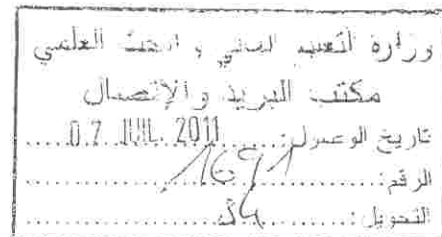 وزارة التعليم العالي و البحث العلمي
مكتب البريد والإتصال
تاريخ الوصول: 07 JUIL 2011
الرقم: 1671
التحويل: